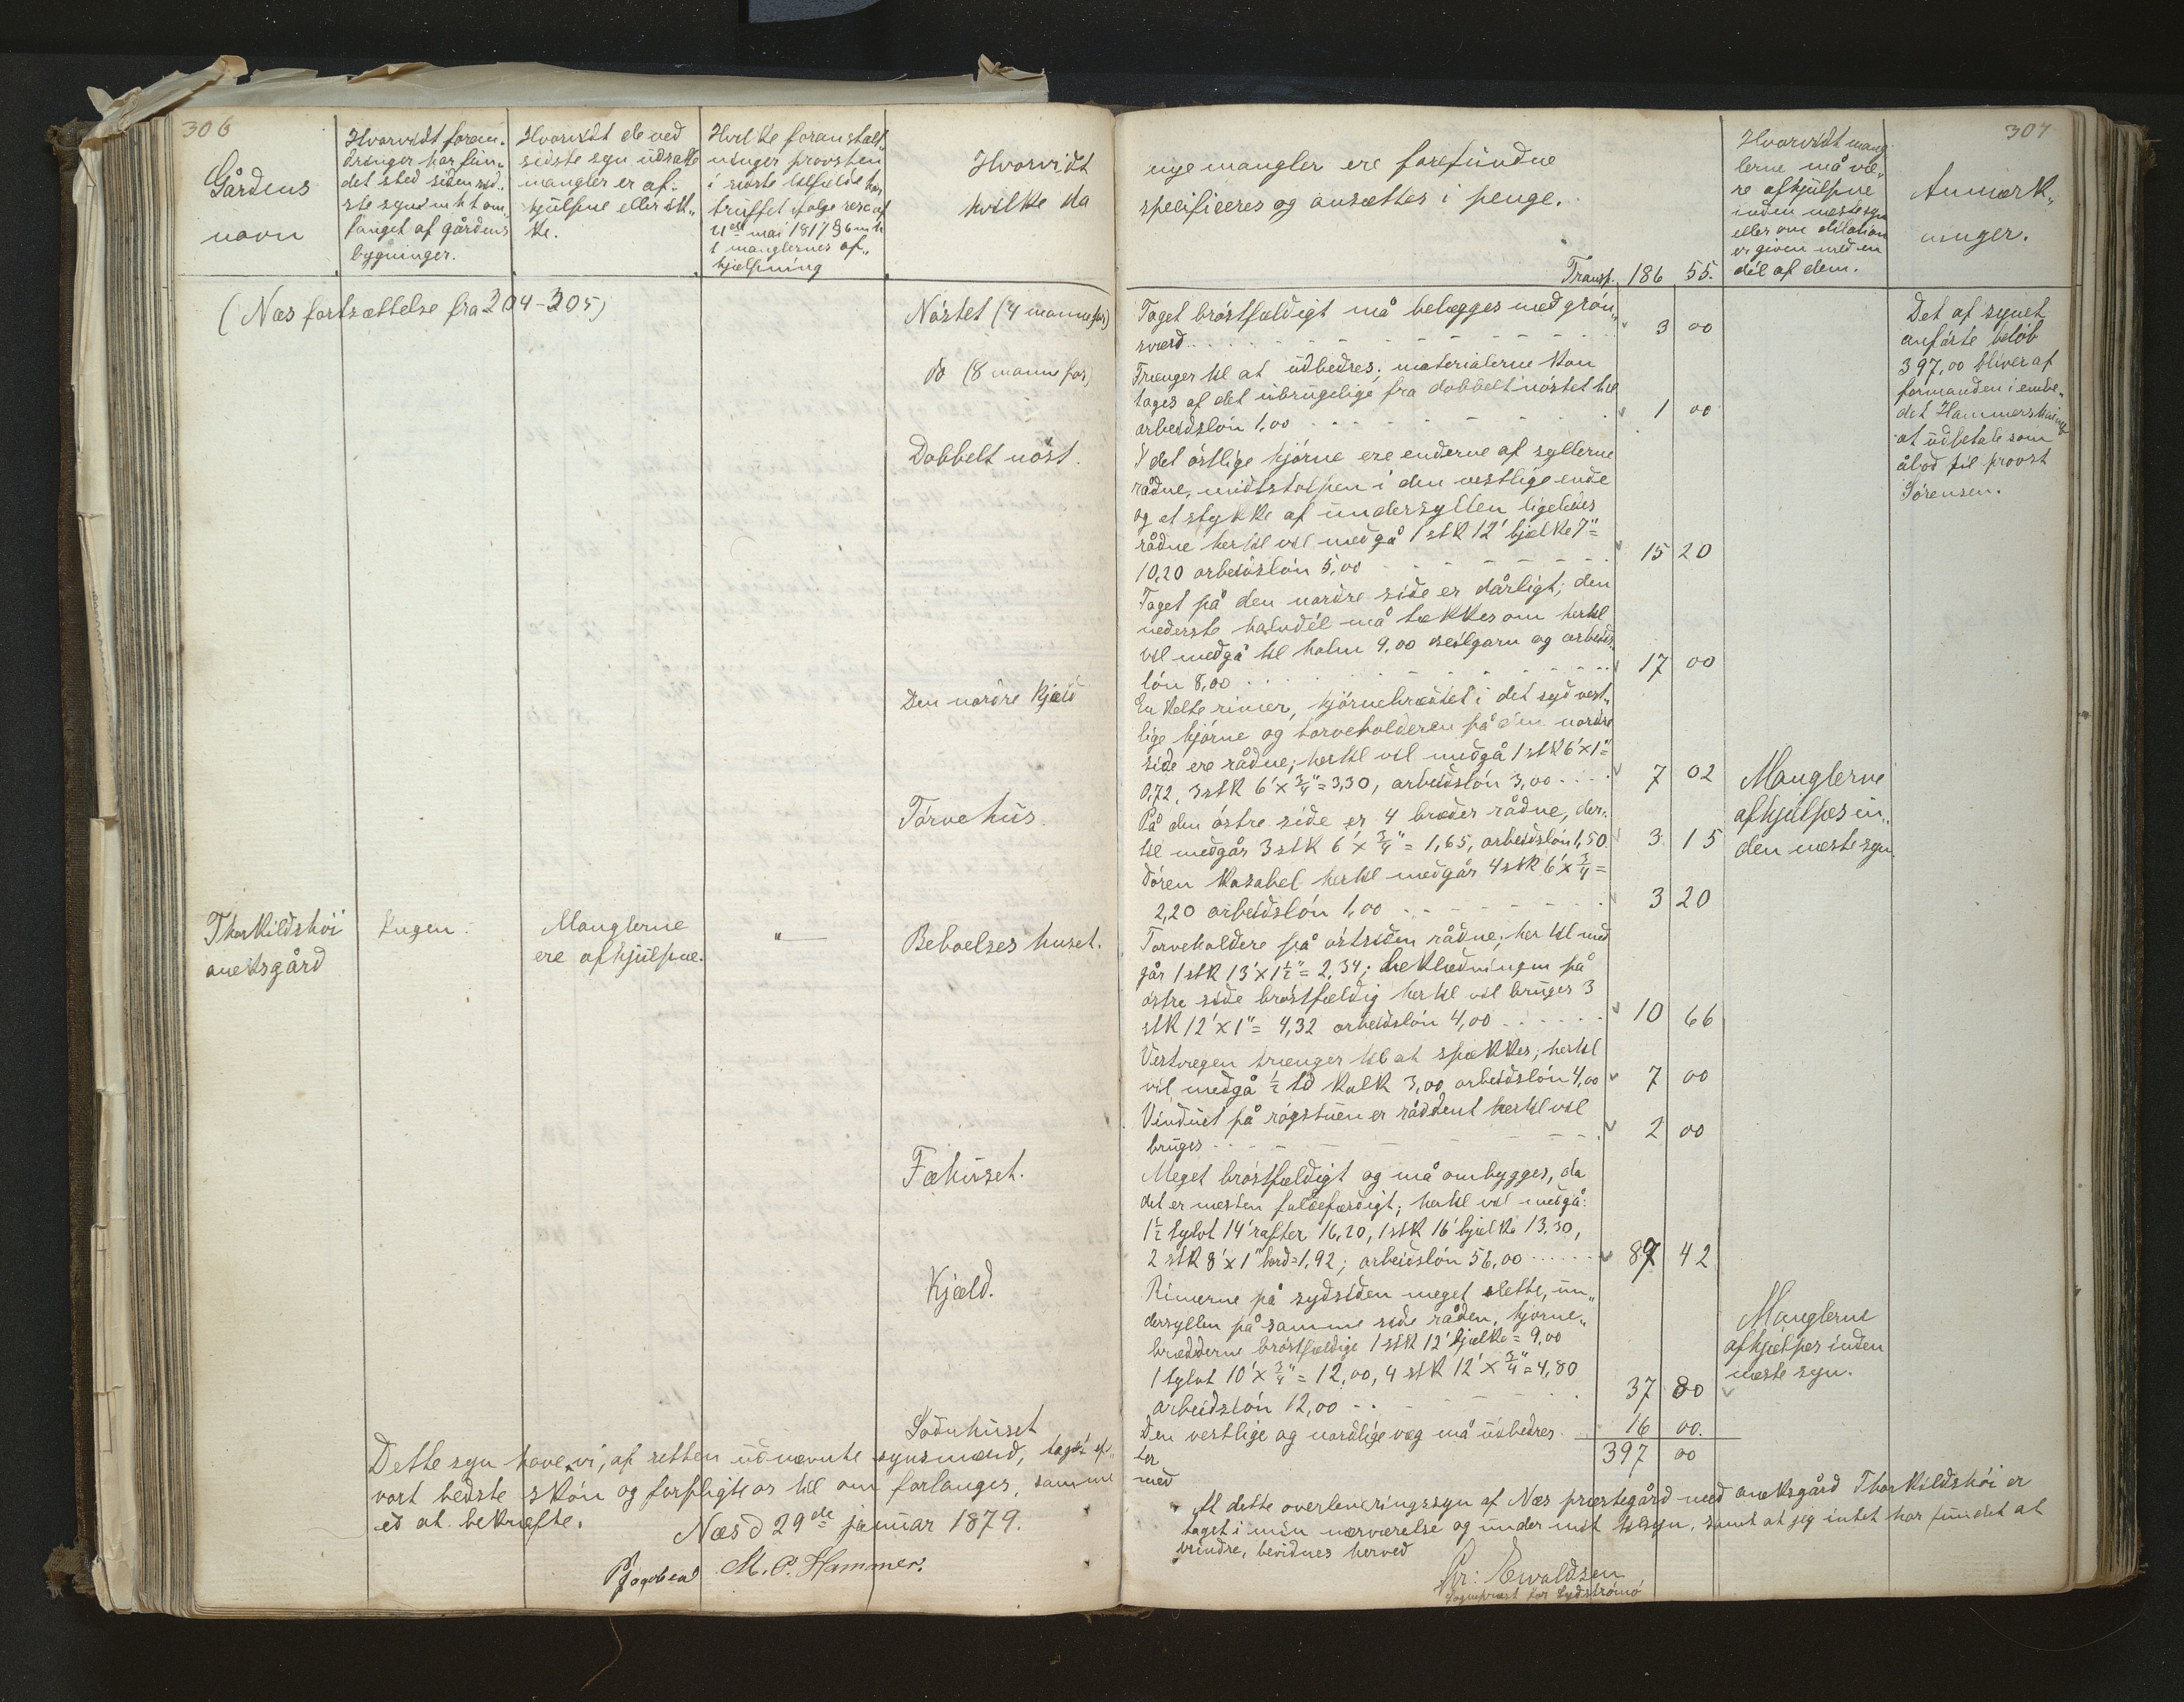 306
Gårdens
navn
Hvorvidt foran„
dringer har fun„
det sted siden sid„
ste syn i mht om„
fanget af gårdens
bygninger.
Hvorvidt de ved
sidste syn udsatte
mangler er af„
hjulpne eller ik„
ke.
Hvilke foranstalt„
ninger provsten
i sidste tilfælde har
truffet ifølge resc af
21de mai 1817 § 6 m h
t manglernes af„
hjælpning
Hvorvidt
hvilke da
(Næs fortsættelse fra 304-305)
Nøstet (4 manne far)
do (8 manne far)
Dobbelt nøst.
Den nordre Kjæld
Tørvehus.
Thorkildshøi
aneksgård
Ingen.
Manglerne
ere afhjulpne.
"—
Beboelses huset.
Fæhuset.
Kjæld.
Sodnhuset
Dette syn have vi, af retten udnævnte synsmænd, taget ef„
vort bedste skøn og forpligte os til om forlanges, samme
ed at bekræfte.
Næs d 29de januar 1879.
PJacobsen M. P. Hammer.
307
nye mangler ere forefundne
specificeres og ansættes i penge.
Transp. 186 55.
Hvorvidt mang
lerne må væ„
re afhjulpne
inden næste syn
eller om dilation
er given med en
dél af dem.
Anmærk„
ninger.
Taget brøstfældigt må belægges med grøn„
sværd 3 00
Trænger til at udbedres; materialerne kan
tages af det ubrugelige fra dobbelt nøstet til
arbeidsløn 1,00 1 00
I det østlige hjørne ere enderne af syllerne
rådne, midtstolpen i den vestlige ende
og et stykke af undersyllen ligeledes
rådne hertil vil medgå 1 stk 12' bjælke 7"=
10,20 arbeidsløn 5,00 15 20
Taget på den nordre side er dårligt; den
nederste halvdél må tækkes om hertil
vil medgå til halm 9,00 seilgarn og arbeids„
løn 8,00 17 00
Enkelte rimer, hjørnebrædtet i det sydvest„
lige hjørne og tørveholderen på den nordre
side ere rådne; hertil vil medgå 1 stk 6' x 1"=
0,72, 3 stk 6' x 3/4" = 3,30, arbeidsløn 3,00 7 02
På den østre side er 4 bræder rådne, der„
til medgår 3 stk 6' x 3/4" = 1,65, arbeidsløn 1,50 3 15
Døren kasabel hertil medgår 4 stk 6' x 3/4 =
2,20 arbeidsløn 1,00 3 20
Tørveholdere på østsiden rådne; hertil med
går 1 stk 13' x 1 1/2" = 2,34; beklædningen på
østre side brøstfældig hertil vil bruges 3
stk 12' x 1" = 4,32 arbeidsløn 4,00 10 66
Vestvægen trænger til at spækkes; hertil
vil medgå 1/2 td kalk 3,00 arbeidsløn 4,00 7 00
Vinduet på røgstuen er råddent hertil vil
bruges 2 00
Meget brøstfældigt og må ombygges, da
det er næsten faldefærdigt; hertil vil medgå:
1 1/2 tylvt 14' rafter 16,20, 1 stk 16' bjælke 13,30,
2 stk 8' x 1" bord = 1,92; arbeidsløn 56,00 87 42
Rimerne på sydsiden meget slette, un„
dersyllen på samme side råden, hjørne„
brædderne brøstfældige 1 stk 12' bjælke = 9,00
1 tylvt 10' x 3/4" = 12,00, 4 stk 12' x 3/4" = 4,80
arbeidsløn 12,00 37 80
Den vestlige og nordlige væg må udbedres 16 00.
397 00
ter
med
At dette overleveringssyn af Næs præstegård med aneksgård Thorkildshøi er
taget i min nærværelse og under mit tilsyn, samt at jeg intet har fundet at
erindre, bevidnes herved
Chr: Evaldsen
Sognepræst for Sydstrømø
Manglerne
afhjælpes in„
den næste syn.
Manglerne
afhjælpes inden
næste syn.
Det af synet
anførte beløb
397,00 bliver af
formanden i embe„
det Hammershaimb
at udbetale som
åbod til provst
Sørensen.